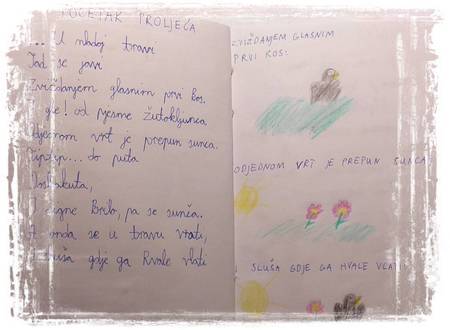 POČETAK PROLJEĆA
... U mladoj travi
Tad se javi
Zviždanjem glasnim prvi kos.
gle! od pjesme žutokljunca
vrt je prepun sunca.
... do puta
I digne Brilo, pa se sunča.
A onda se u travu vrati,
sluša gdje ga hvale vlati
ZVIŽDANJEM GLASNIM
PRVI KOS:
ODJEDNOM VRT JE PREPUN SUNCA
SLUŠA GDJE GA HVALE VLATI